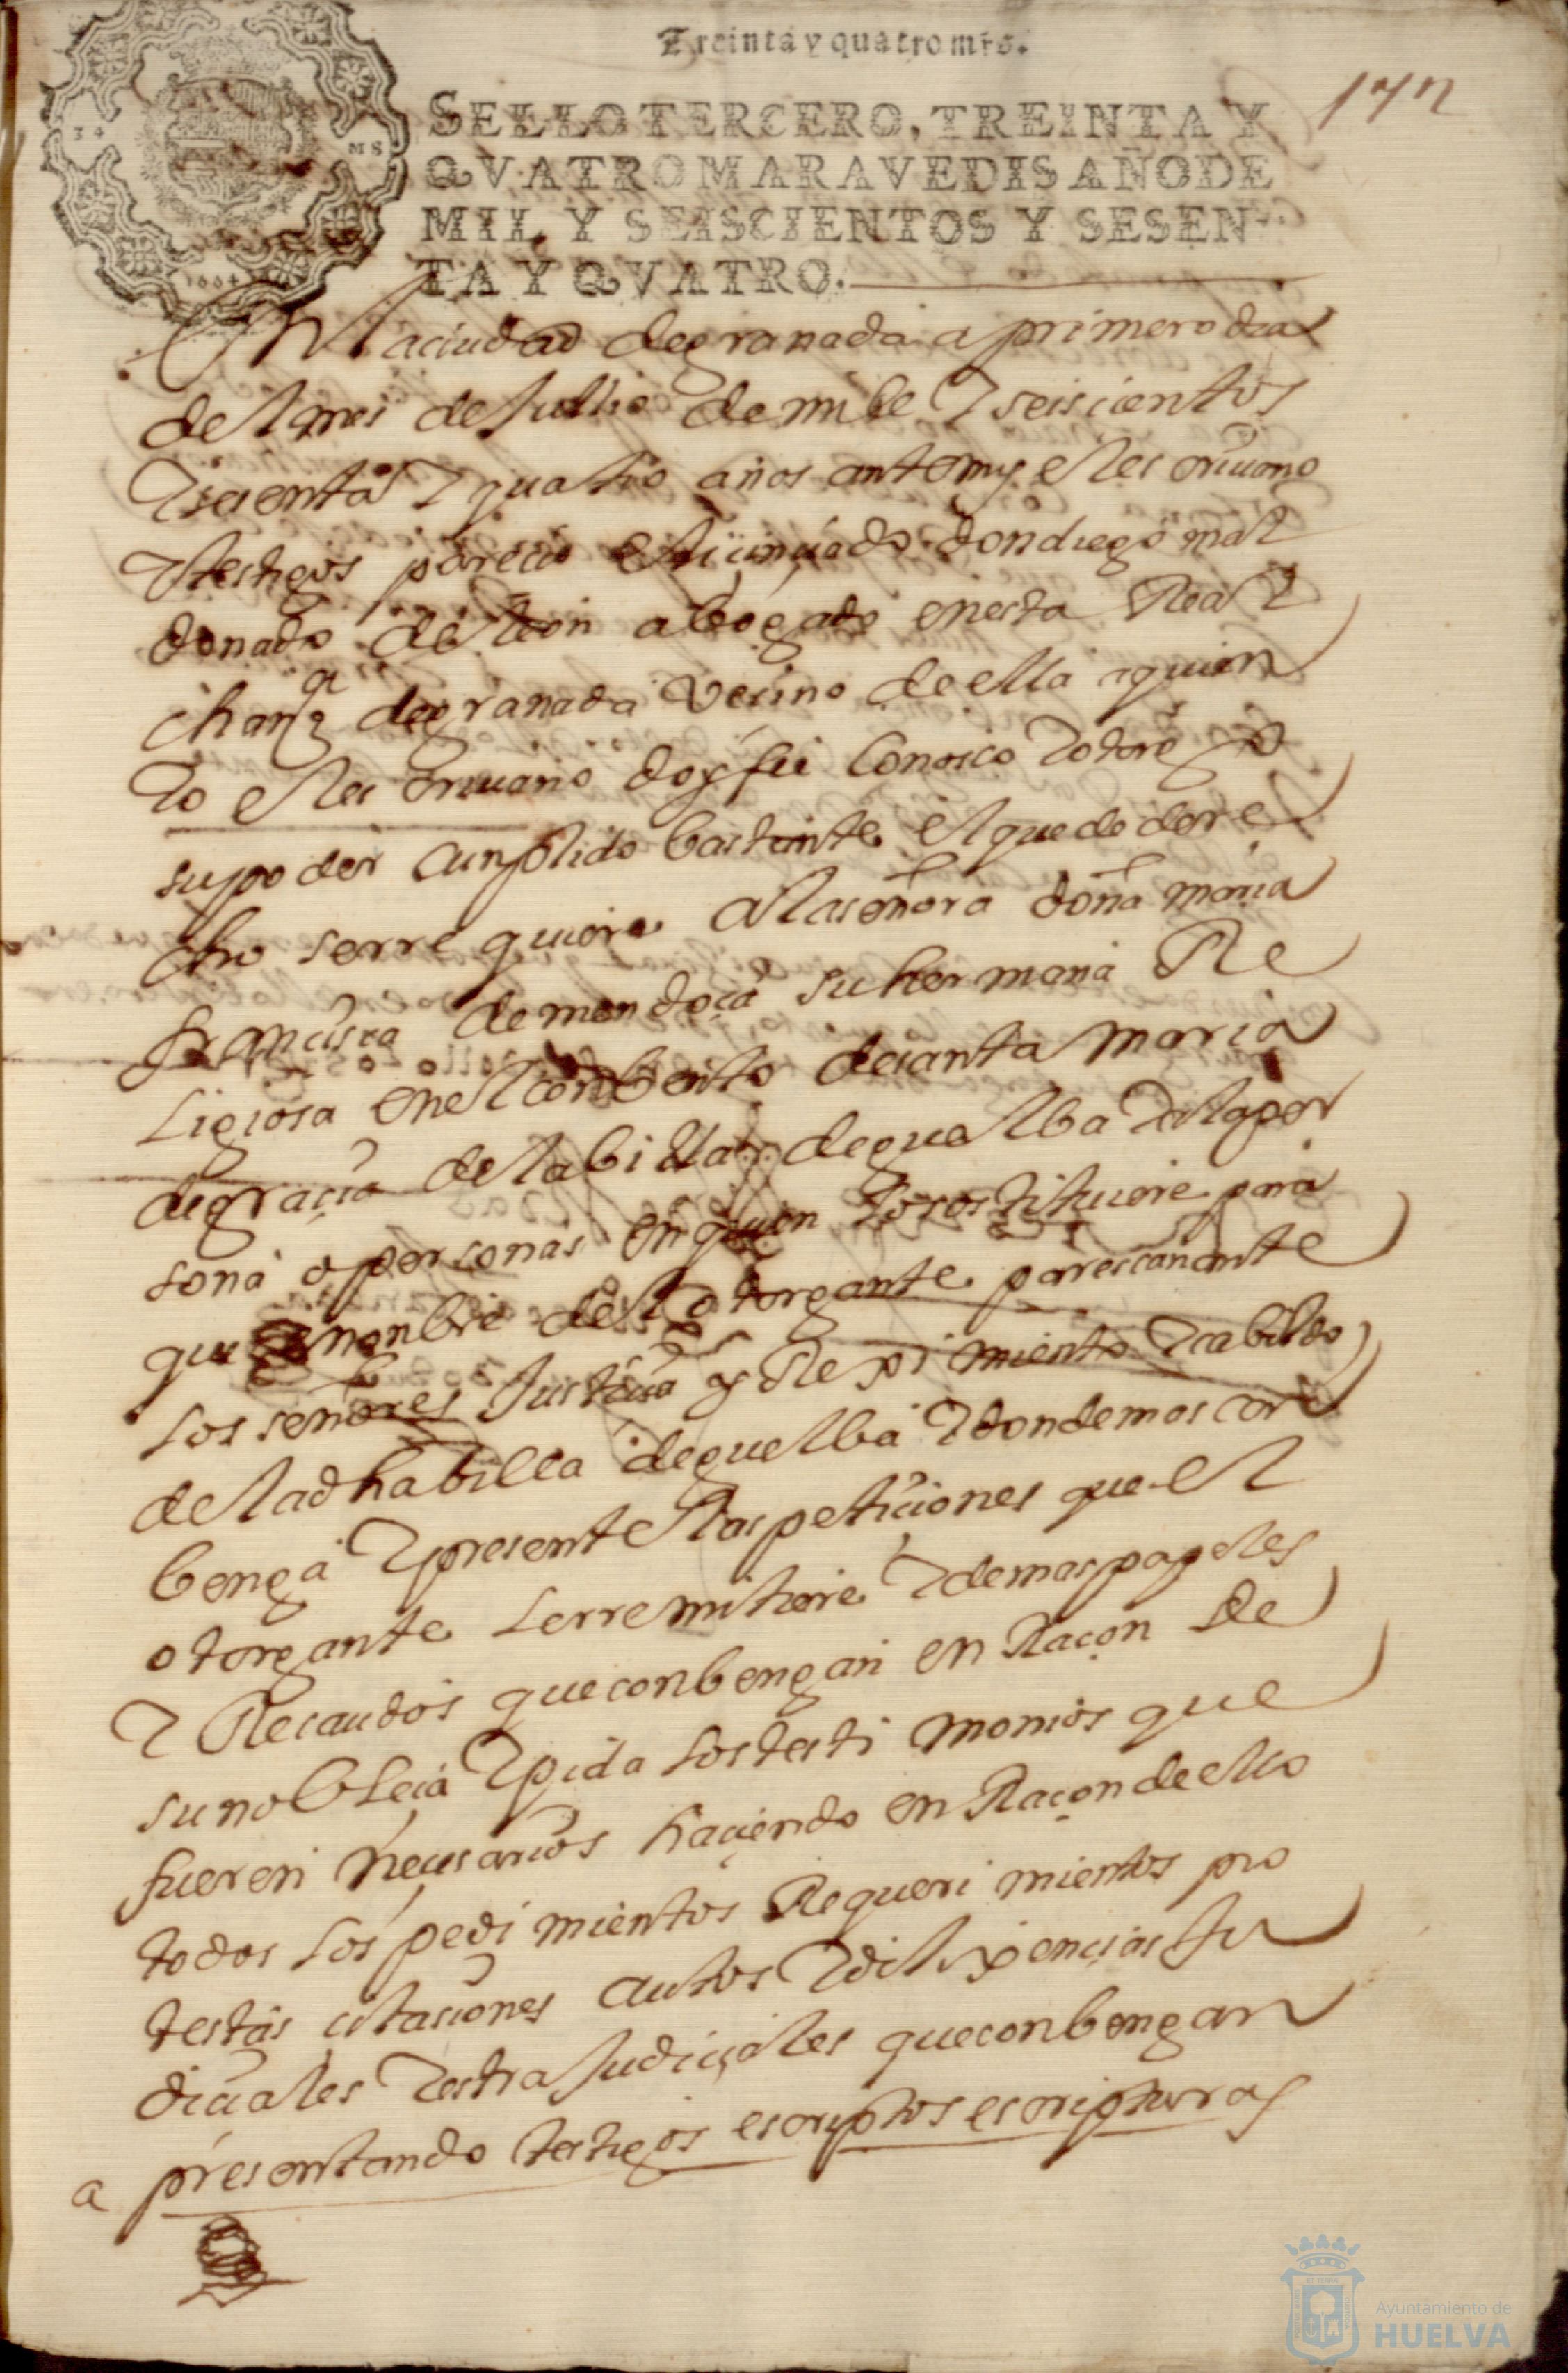 Treinta y quatro mrs.
172
SELLO TERCERO, TREINTA Y
QVATRO MARAVEDIS AÑO DE
MIL Y SEISCIENTOS Y SESEN-
TA Y QVATRO.
34
MS
1664
En la ciudad de granada a primero dia
del mes de Jullio de mill y seiscientos
y sesenta y quatro años ante my el escriuano
y testigos parecio el licenciado don diego mal
donado de leon abogado en esta Real
chanza de granada vecino de ella a quien
yo el escriuano doy fee conosco y otorgo
su poder cunplido bastante el que de dere
cho se rrequiere a la señora doña maria
francisca de mendoça su hermana Re
ligiosa en el conbento de santa maria
de gracia de la billa de guelba y a la per
sona o personas en quien lo sostituiere para
que en nonbre del otorgante parescan ante
los señores Justicia y Reximiento y cabildo
de la dha billa de guelba y donde mas con
benga y presente las peticiones que el
otorgante le rremitiere y demas papeles
y Recaudos que conbengan en Raçon de
su nobleça y pida los testimonios que
fueren necesarios haciendo en Raçon de ello
todos los pedimientos Requerimientos pro
testas citaciones autos y dilixencias Ju
diciales y estraJudiciales que conbengan
a presentando testigos escriptos escripturas
Ayuntamiento de
HUELVA